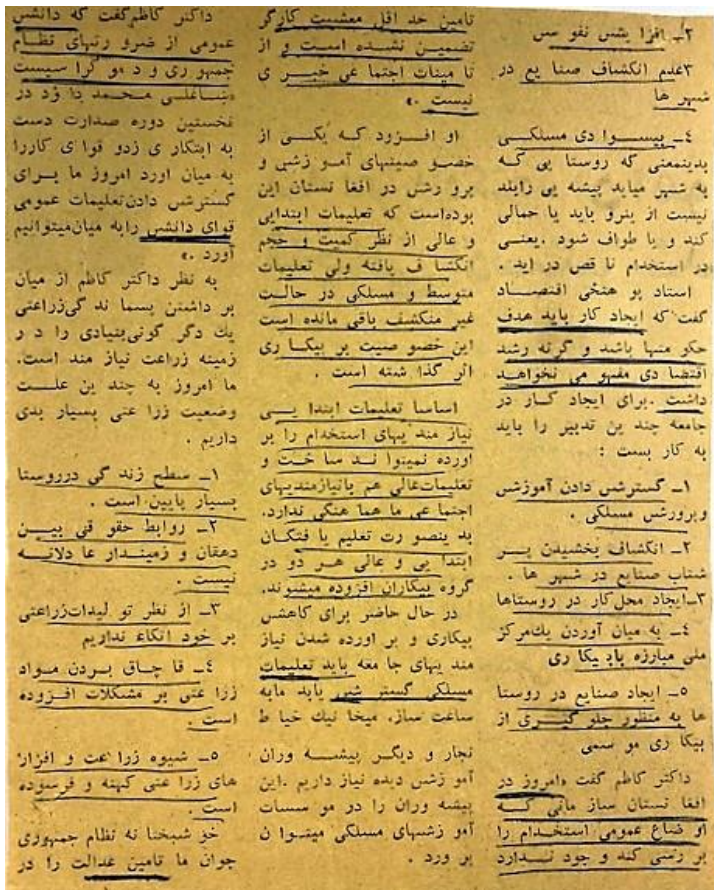 ۲ــ افزا یش نفو س
۳عدم انکشاف صنا یع در
شهر ها
٤ــ بیســوا دی مسلکــی
بدینمعنی که روستا یی کــه
به شهر میاید پیشه یی رابلد
نیست از ینرو باید یا حمالی
کند و یا طواف شود .یعنــی
در استخدام نا قص در اید .
استاد پو هنځی اقتصــاد
گفت که ایجاد کار باید هدف
حکو متها باشد و گر نه رشد
اقتصا دی مفهو می نخواهــد
داشت .برای ایجاد کــار در
جامعه چند ین تدبیر را باید
به کار بست :
۱ــ گسترش دادن آموزش
وپرورش مسلکی .
۲ــ انکشاف بخشیدن پــر
شتاب صنایع در شهر ها .
۳ــایجاد محل کار در روستاها
٤ــ به میان آوردن یك مرکز
ملی مبارزه باب یکا ری
٥ــ ایجاد صنایع در روستا
ها به منظور جلو گیــری از
بیکا ری مو سمی
داکتر کاظم گفت «امروز در
افغا نستان ساز مانی کــه
او ضاع عمومی استخدام را
بر رسی کند و جود نــدارد
تامین حد اقل معشیت کارگر
تضمین نشده اســت و از
تا مینات اجتما عی خبــر ی
نیست .»
او افــزود کــه یکــی از
خصــو صیتهای آمــو زش و
پرو رش در افغا نستان این
بوده‌است که تعلیمات ابتدایی
و عالی از نظر کمیت و حجم
انکشا ف یافته ولی تعلیمات
متوسط و مسلکی در حالــت
غیر منکشف باقی مانده است
این خصو صیت بر بیکــا ری
اثر گذا شته است .
اساسا تعلیمات ابتدا یــی
نیاز مند یهای استخدام را بر
اورده نمیتوا نــد سا خــت و
تعلیمات‌عالی هم بانیازمندیهای
اجتما عی ما هما هنگی ندارد.
بد ینصو رت تعلیم یا فتگــان
ابتدا یی و عالی هــر دو در
گروه بیکاران افزوده میشوند.
در حال حاضر برای کاهش
بیکاری و بر اورده شدن نیاز
مند یهای جا معه باید تعلیمات
مسلکی گستر ش یابد مابه
ساعت ساز، میخا نیك خیا ط
نجار و دیگــر پیشــه وران
آمو زش دیده نیاز داریم .این
پیشه وران را دو مو سسات
آمو زشهای مسلکی میتــوا ن
پر ورد .
داکتر کاظم گفت که دانش
عمومی از ضرو رتهای نظــام
جمهو ری و د مو کرا سیست
ښاغلی محــمد دا ؤد در
نخستین دوره صدارت دست
به ابتکار ی زدو قوا ی کاررا
به میان اورد امروز ما بــرای
گسترش دادن تعلیمات عمومی
قوای دانش رابه میان میتوانیم
آورد .»
به نظر داکتر کاظم از میان
بر داشتن پسما ند گی‌زراعتی
یك دگر گونی‌بنیادی را د ر
زمینه زراعت نیاز مند است.
ما امروز به چند ین علــت
وضعیت زرا عتی بسیار بدی
داریم .
۱ــ سطح زند گی درروستا
بسیار پایین است .
۲ــ روابط حقو قی بیــن
دهقان و زمیندار عا دلانــه
نیست .
۳ــ از نظر تو لیدات‌زراعتی
بر خود اتکاء نداریم
٤ــ قا چاق بــردن مــواد
زرا عتی بر مشکلات افــزوده
است .
٥ــ شیوه زرا عت و افزار
های زرا عتی کهنه و فرسوده
است .
خو شبختا نه نظام جمهوری
جوان ما تامین عدالت را در